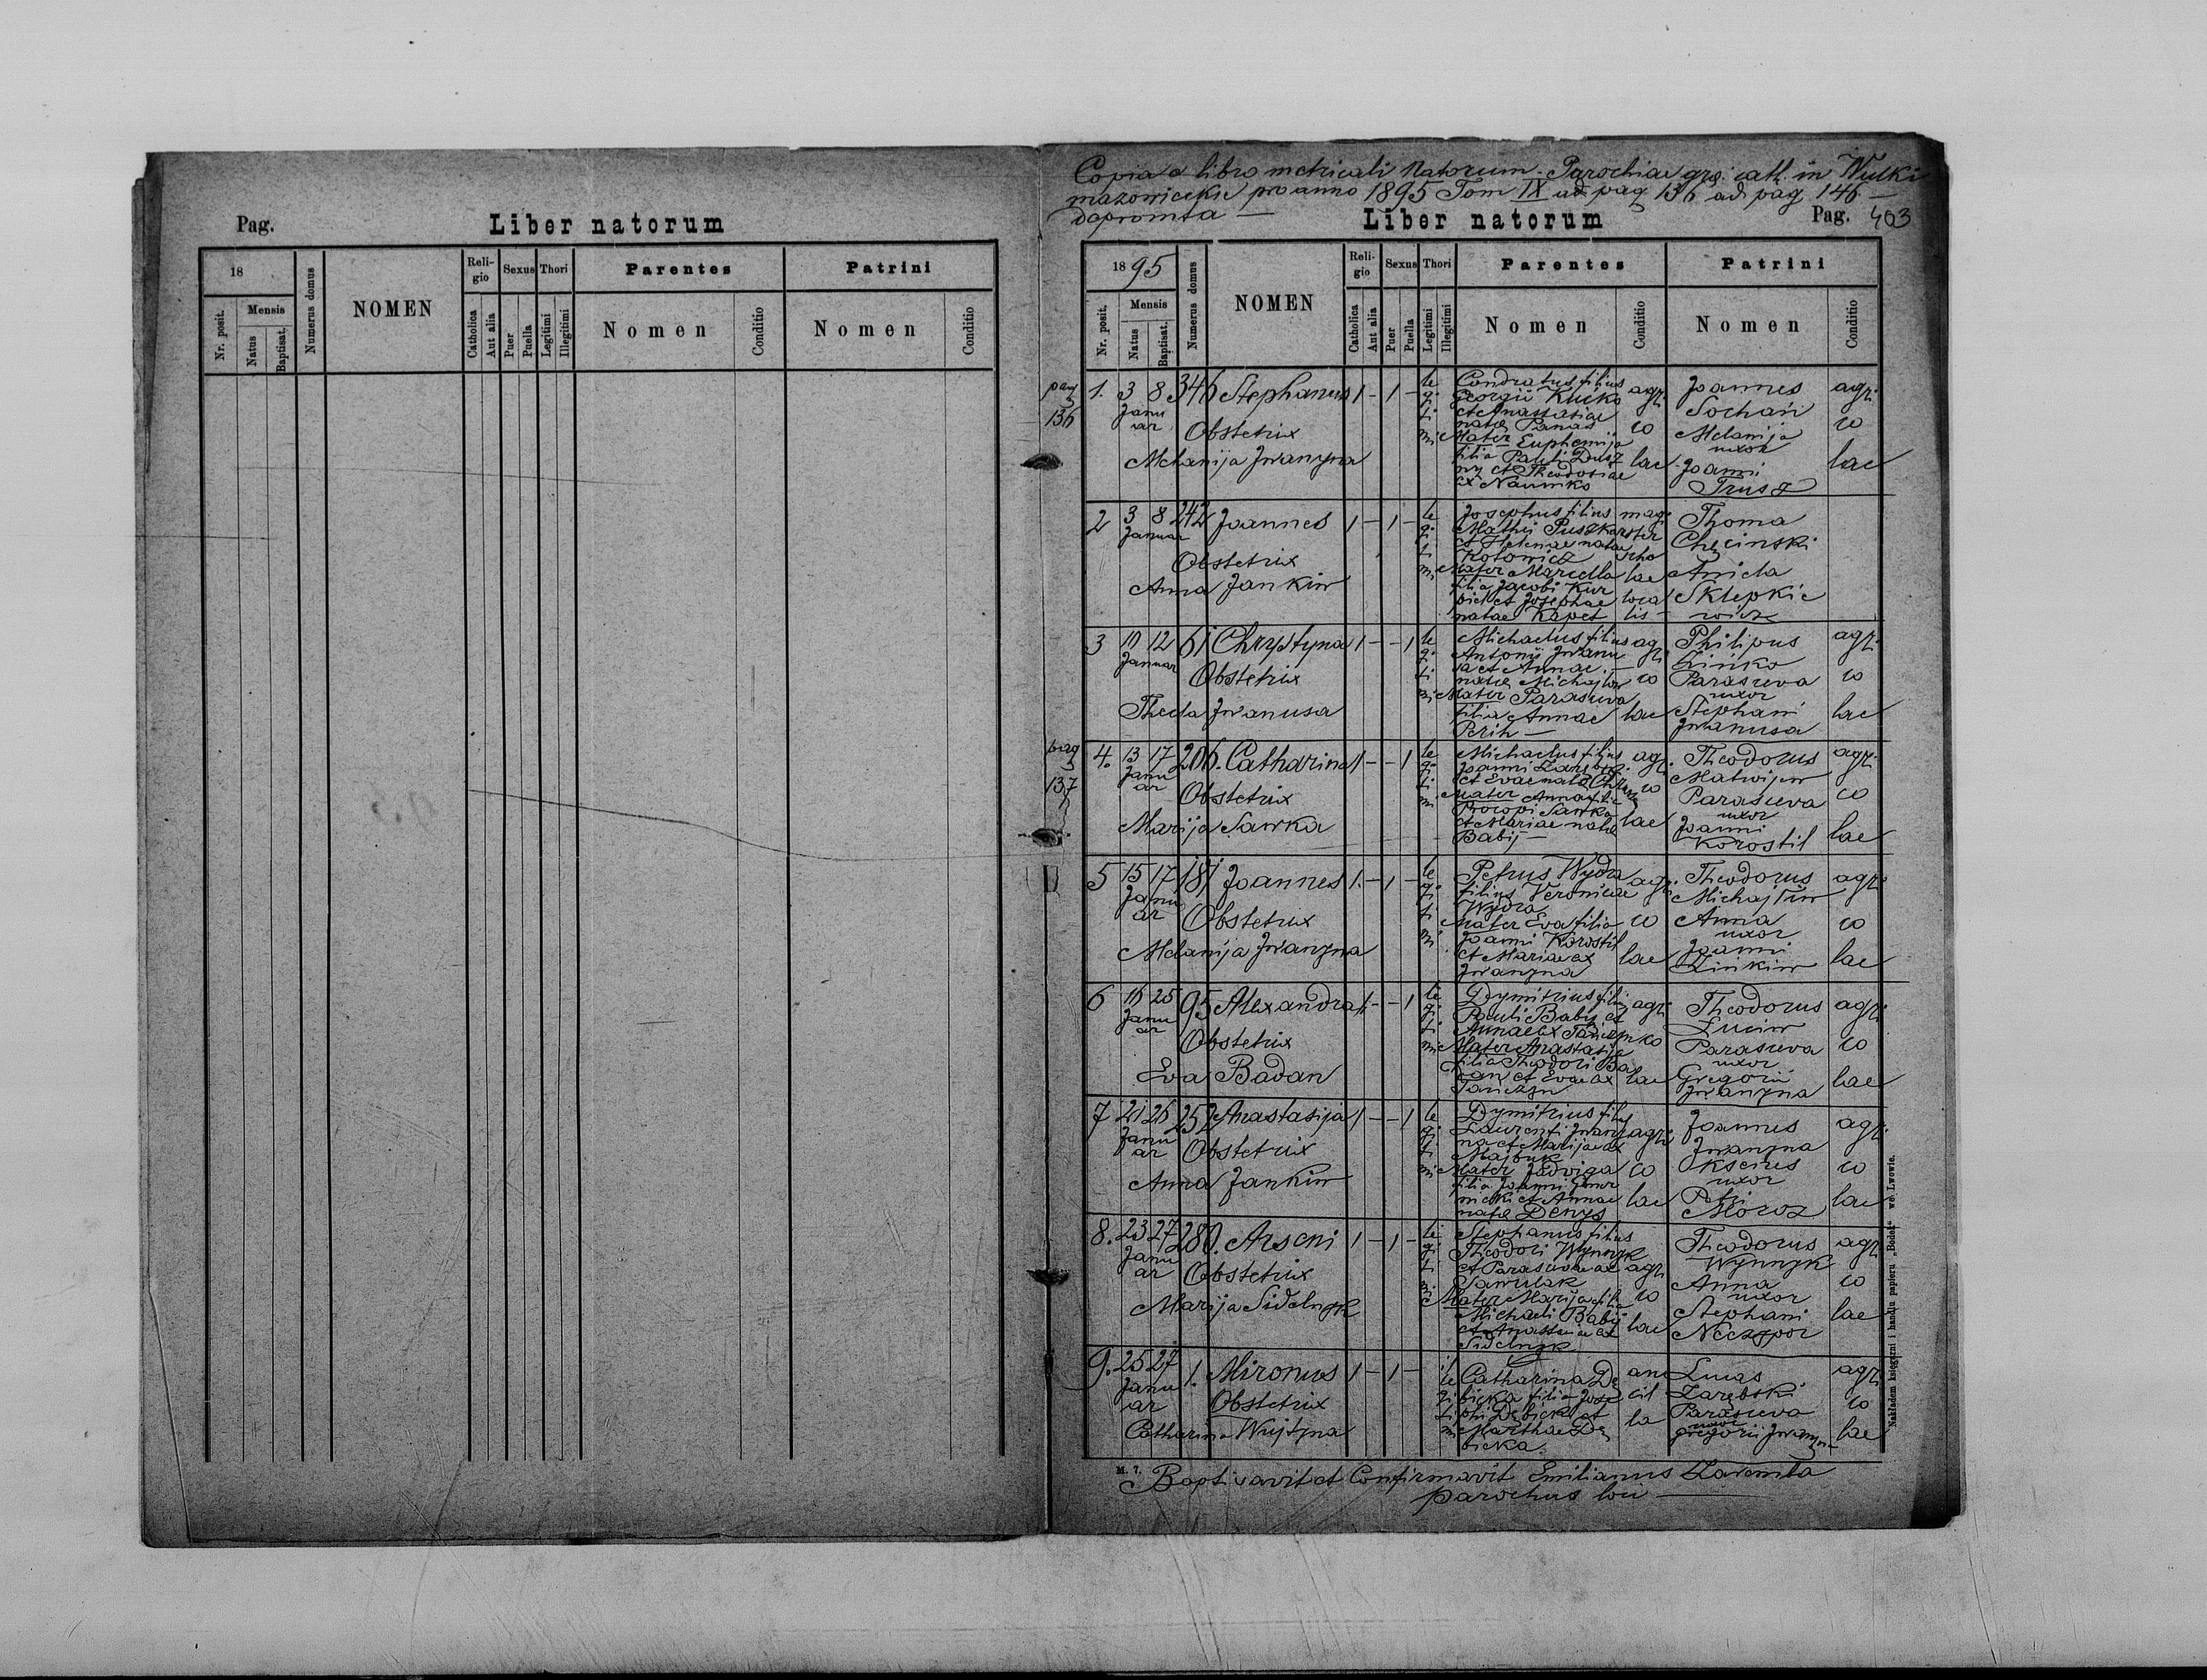 Pag.
Liber natorum
18
Numerus domus
NOMEN
Religio
Sexus
Thori
Parentes
Patrini
Nr. posit.
Mensis
Natus
Baptisat.
Catholica
Aut alia
Puer
Puella
Legitimi
Illegitimi
Nomen
Conditio
Nomen
Conditio
Copia e libro metricali Natorum Parochiae gr. cath. in Wulki
mazowieckie pro anno 1895 Tom IX ad pag 136 ad pag 146
depromta
Liber natorum
Pag. 403
1895
Numerus domus
NOMEN
Reli-
gio
Sexus
Thori
Parentes
Patrini
Nr. posit.
Mensis
Natus
Baptisat.
Catholica
Aut alia
Puer
Puella
Legitimi
Illegitimi
Nomen
Conditio
Nomen
Conditio
pag
136
1. 3 8 346 Stephanus 1 - 1 -
Januar
Obstetrix
Melanija Iwanyna
legitimi
Condratus filius
Georgii Kućko
et Anastasiae
natae Panas
Mater Euphemija
filia Pauli Dusz
ny et Theodosiae
ex Naumko
agri
co
lae
Joannes
Sochań
Melanija
uxor
Joanni
Trusz
agri
co
lae
2 3 8 242 Joannes 1 - 1 -
Januar
Obstetrix
Anna Jankiw
legitimi
Josephus filius
Mathei Puszkar
et Helenae natae
Kotowicz
Mater Marcella
filia Jacobi Kur
et Josephae
natae Kapet
magi
ster
scho
lae
loca
lis
Thoma
Chęcinski
Aniela
Sklepkie
wicz
3 10 12 61 Chrystyna 1 - - 1
Januar
Obstetrix
Thecla Iwanusa
legitimi
Michaelus filius
Antonij Iwanu
sa et Annae
natae Michajlow
Mater Parasceva
filia Annae
Perih
agri
co
lae
Philipus
Zińko
Parasceva
uxor
Stephani
Iwanusa
agri
co
lae
pag
137
4. 13 17 206. Catharina 1 - - 1
Januar
Obstetrix
Marija Sawka
legitimi
Michaelus filius
Joanni
et Evae natae
Mater Anna filia
Procopi Sawka
et Mariae natae
Babij
agri
co
lae
Theodorus
Matwijiw
Parasceva
uxor
Joanni
Korostil
agri
co
lae
5 15 17 181 Joannes 1. - 1 -
Januar
Obstetrix
Melanija Iwanyna
legitimi
Petrus Wydra
filius Veronicae
Wydra
Mater Eva filia
Joanni Korostil
et Mariae ex
Iwanyna
agri
co
lae
Theodorus
Michajliw
Anna
uxor
Joanni
Zinkiw
agri
co
lae
6 16 25 95 Alexandra 1 - - 1
Januar
Obstetrix
Eva Badan
legitimi
Dymitrius filius
Pauli Babij et
Annae ex Tańczyn
Mater Anastasija
filia Theodori Ba
dan et Evae ex
Tańczyn
agri
co
lae
Theodorus
Luciw
Parasceva
uxor
Gregorii
Iwanyna
agri
co
lae
7 21 26 252 Anastasija 1 - - 1
Januar
Obstetrix
Anna Jankiw
legitimi
Dymitrius filius
Laurenti Iwany
na et Marijae ex
Majbuk
Mater Jadviga
filia Joanni
nicki et Annae
natae Denys
agri
co
lae
Joannes
Iwanyna
Kseines
uxor
Petri
Moroz
agri
co
lae
8. 23 27 280. Arseni 1 - 1 -
Januar
Obstetrix
Marija Sidelnyk
legitimi
Stephanus filius
Theodori Wynnyk
et Parascevae ex
Sawulak
Mater Marija filia
Michaeli Babij
et Anastasiae ex
Sidelnyk
agri
co
lae
Theodorus
Wynnyk
Anna
uxor
Stephani
Neczypor
agri
co
lae
9. 25 27 1. Mironus 1 - 1 -
Januar
Obstetrix
Catharina Wujtyna
illegitimi
Catharina Dę
bicka filia Jose
phi Dębicki et
Marthae Dę
bicka
ancil
la
Lucas
Zarębski
Parasceva
uxor
Gregorii Iwanyna
agri
co
lae
M. 7. Baptisavit et Confirmavit Emilianus Zaremba
parochus loci
Nakładem księgarni i handlu papieru „Boda“ we Lwowie.